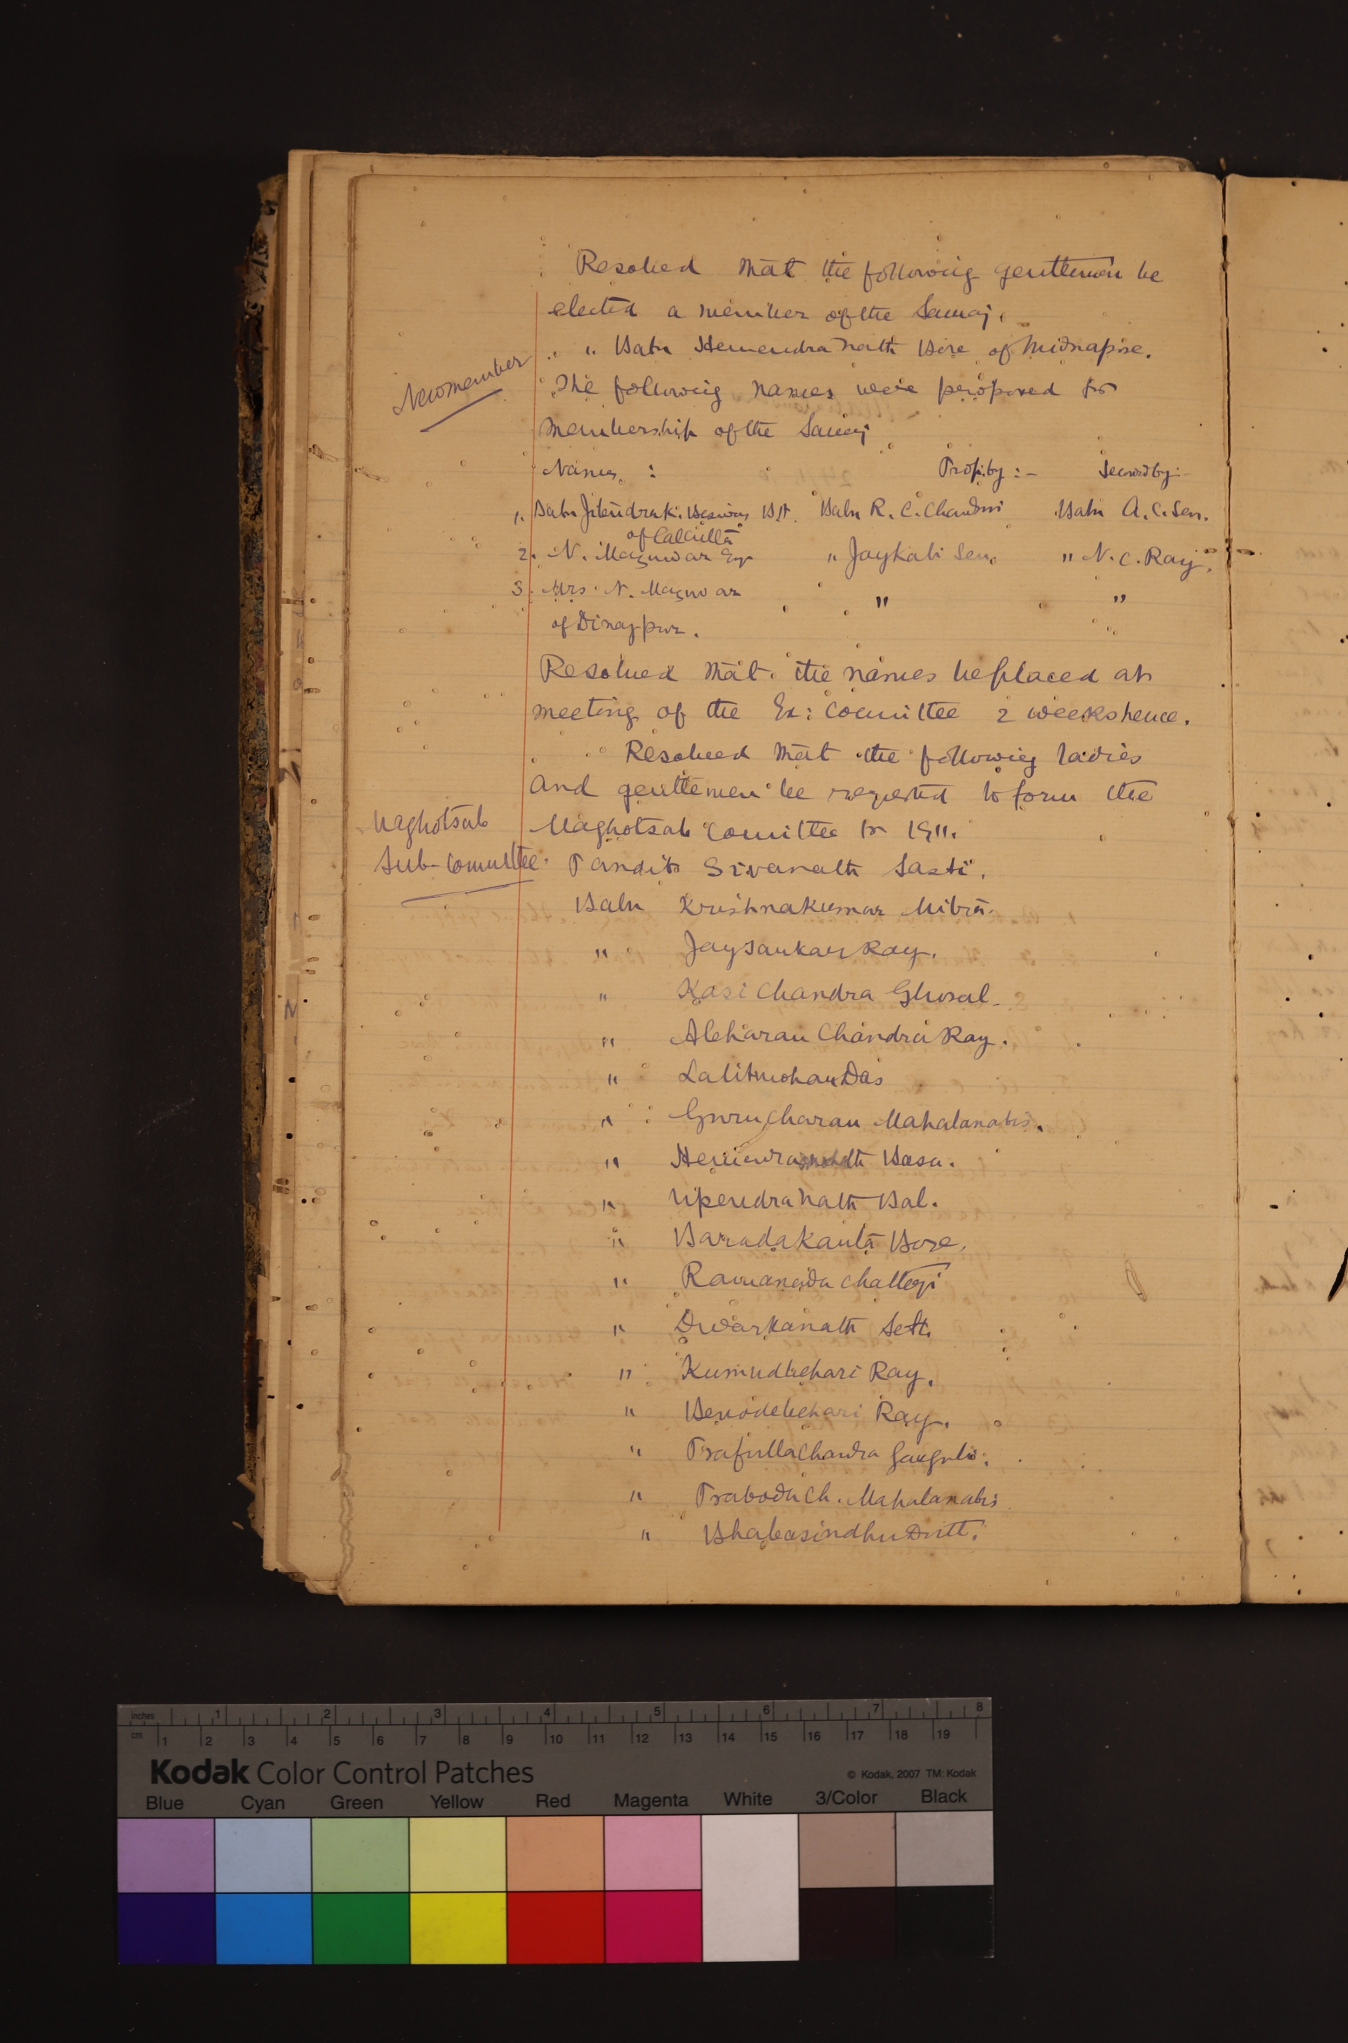 Resolved that the following gentlemen be
elected a member of the Samaj.
" " Babu Hemendra Nath Bose of Midnapore.
New member
The following names were proposed for
membership of the Samaj
Names : Prop. by :- Second by :-
1. Babu Jitendra K. Biswas B.A. Babu R. C. Chaudhuri Babu A. C. Sen.
of Calcutta
2. N. Mazumdar Esqr " Jaykali Sen. " N. C. Ray.
3. Mrs. N. Mazumdar " "
of Dinajpur.
Resolved that the names be placed at
meeting of the Ex: Committee 2 weeks hence.
Resolved that the following ladies
and gentlemen be requested to form the
Maghotsab
Maghotsab Comittee for 1911.
Sub-Committee.
Pandit Sivanath Sastri.
Babu Krishnakumar Mitra.
" Jaysankar Ray.
" Kasi Chandra Ghosal.
" Abharan Chandra Ray.
" Lalitmohan Das
" Gurucharan Mahalanabis.
" Hemendranath Basu.
" Upendra Nath Bal.
" Baradakanta Bose.
" Ramananda Chatterji
" Dwarkanath Sett.
" Kumudbehari Ray.
" Benodebehari Ray.
" Prafulla Chandra Ganguli.
" Prabodh Ch. Mahalanabis
" Bhabasindhu Dutt.
inches 1 2 3 4 5 6 7 8
cm 1 2 3 4 5 6 7 8 9 10 11 12 13 14 15 16 17 18 19
Kodak Color Control Patches © Kodak, 2007 TM: Kodak
Blue Cyan Green Yellow Red Magenta White 3/Color Black